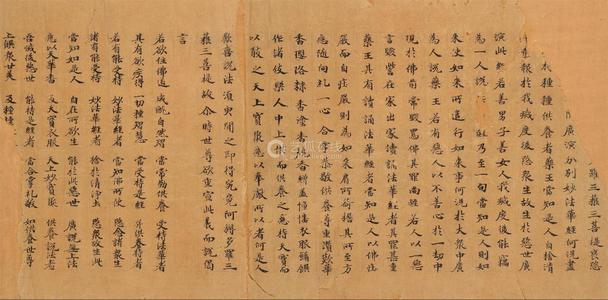 藐三藐三菩提哀愍
廣演分別妙法華經何況盡
種種供養者藥王當知是人自捨清
業報於我滅度後愍眾生故生於惡世廣
演此經若善男子善女人我滅度後能竊
為一人說
經乃至一句當知是人則如
來使如來所遣行如來事何況於大眾中廣
為人說藥王若有惡人以不善心於一劫中
現於佛前常毀罵佛其罪尚輕若人以一惡
言毀呰在家出家讀誦法華經者其罪甚重
藥王其有讀誦法華經者當知是人以佛莊
嚴而自莊嚴則為如來肩所荷擔其所至方
應隨向禮一心合掌恭敬供養尊重讚歎華
香瓔珞末香塗香燒香繒蓋幢幡衣服餚饌
作諸伎樂人中上供而供養之應持天寶而
以散之天上寶聚應以奉獻所以者何是人
歡喜說法須臾聞之即得究竟阿耨多羅三
藐三菩提故爾時世尊欲重宣此義而說偈
言
若欲住佛道 成就自然智 常當勤供養 受持法華者
其有欲疾得 一切種智慧 當受持是經 并供養持者
若有能受持 妙法華經者 當知佛所使 愍念諸眾生
諸有能受持 妙法華經者 捨於清淨土 愍眾故生此
當知如是人 自在所欲生 能於此惡世 廣說無上法
應以天華香 及天寶衣服 天上妙寶聚 供養說法者
吾滅後惡世 能持是經者 當合掌禮敬 如供養世尊
上饌眾甘美 及種種